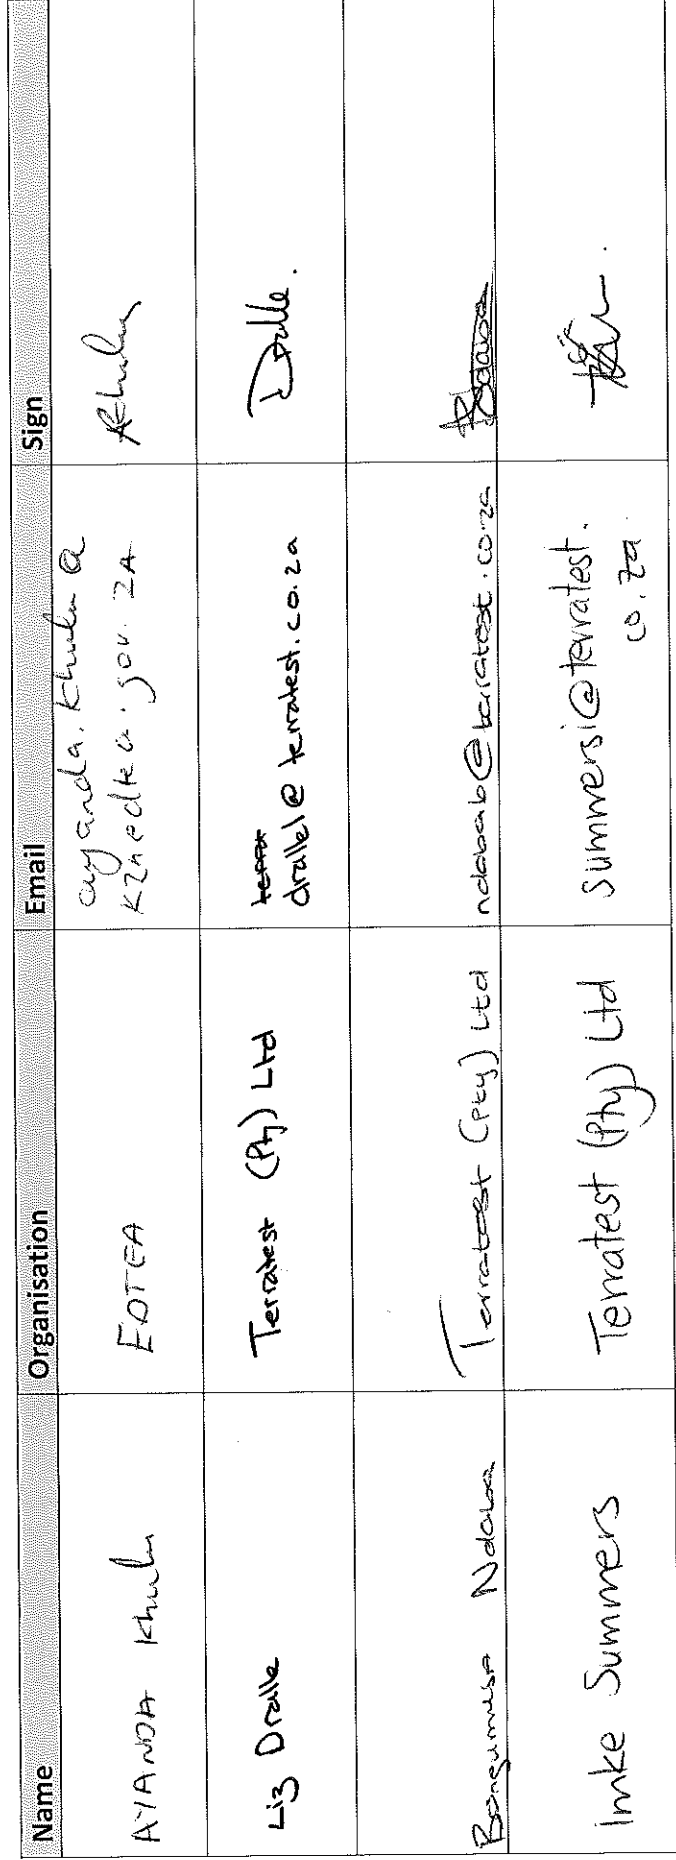 Name Organisation Email Sign
AYANDA Khulu EDTEA ayanda.khulu@
kznedtea.gov.ZA
Liz Dralle Terratest (Pty) Ltd terra
drallel@terratest.co.za Dralle.
Bongumusa Ndaba Terratest (Pty) Ltd ndabab@terratest.co.za Ndaba
Imke Summers Terratest (Pty) Ltd summersi@terratest.
co.za.